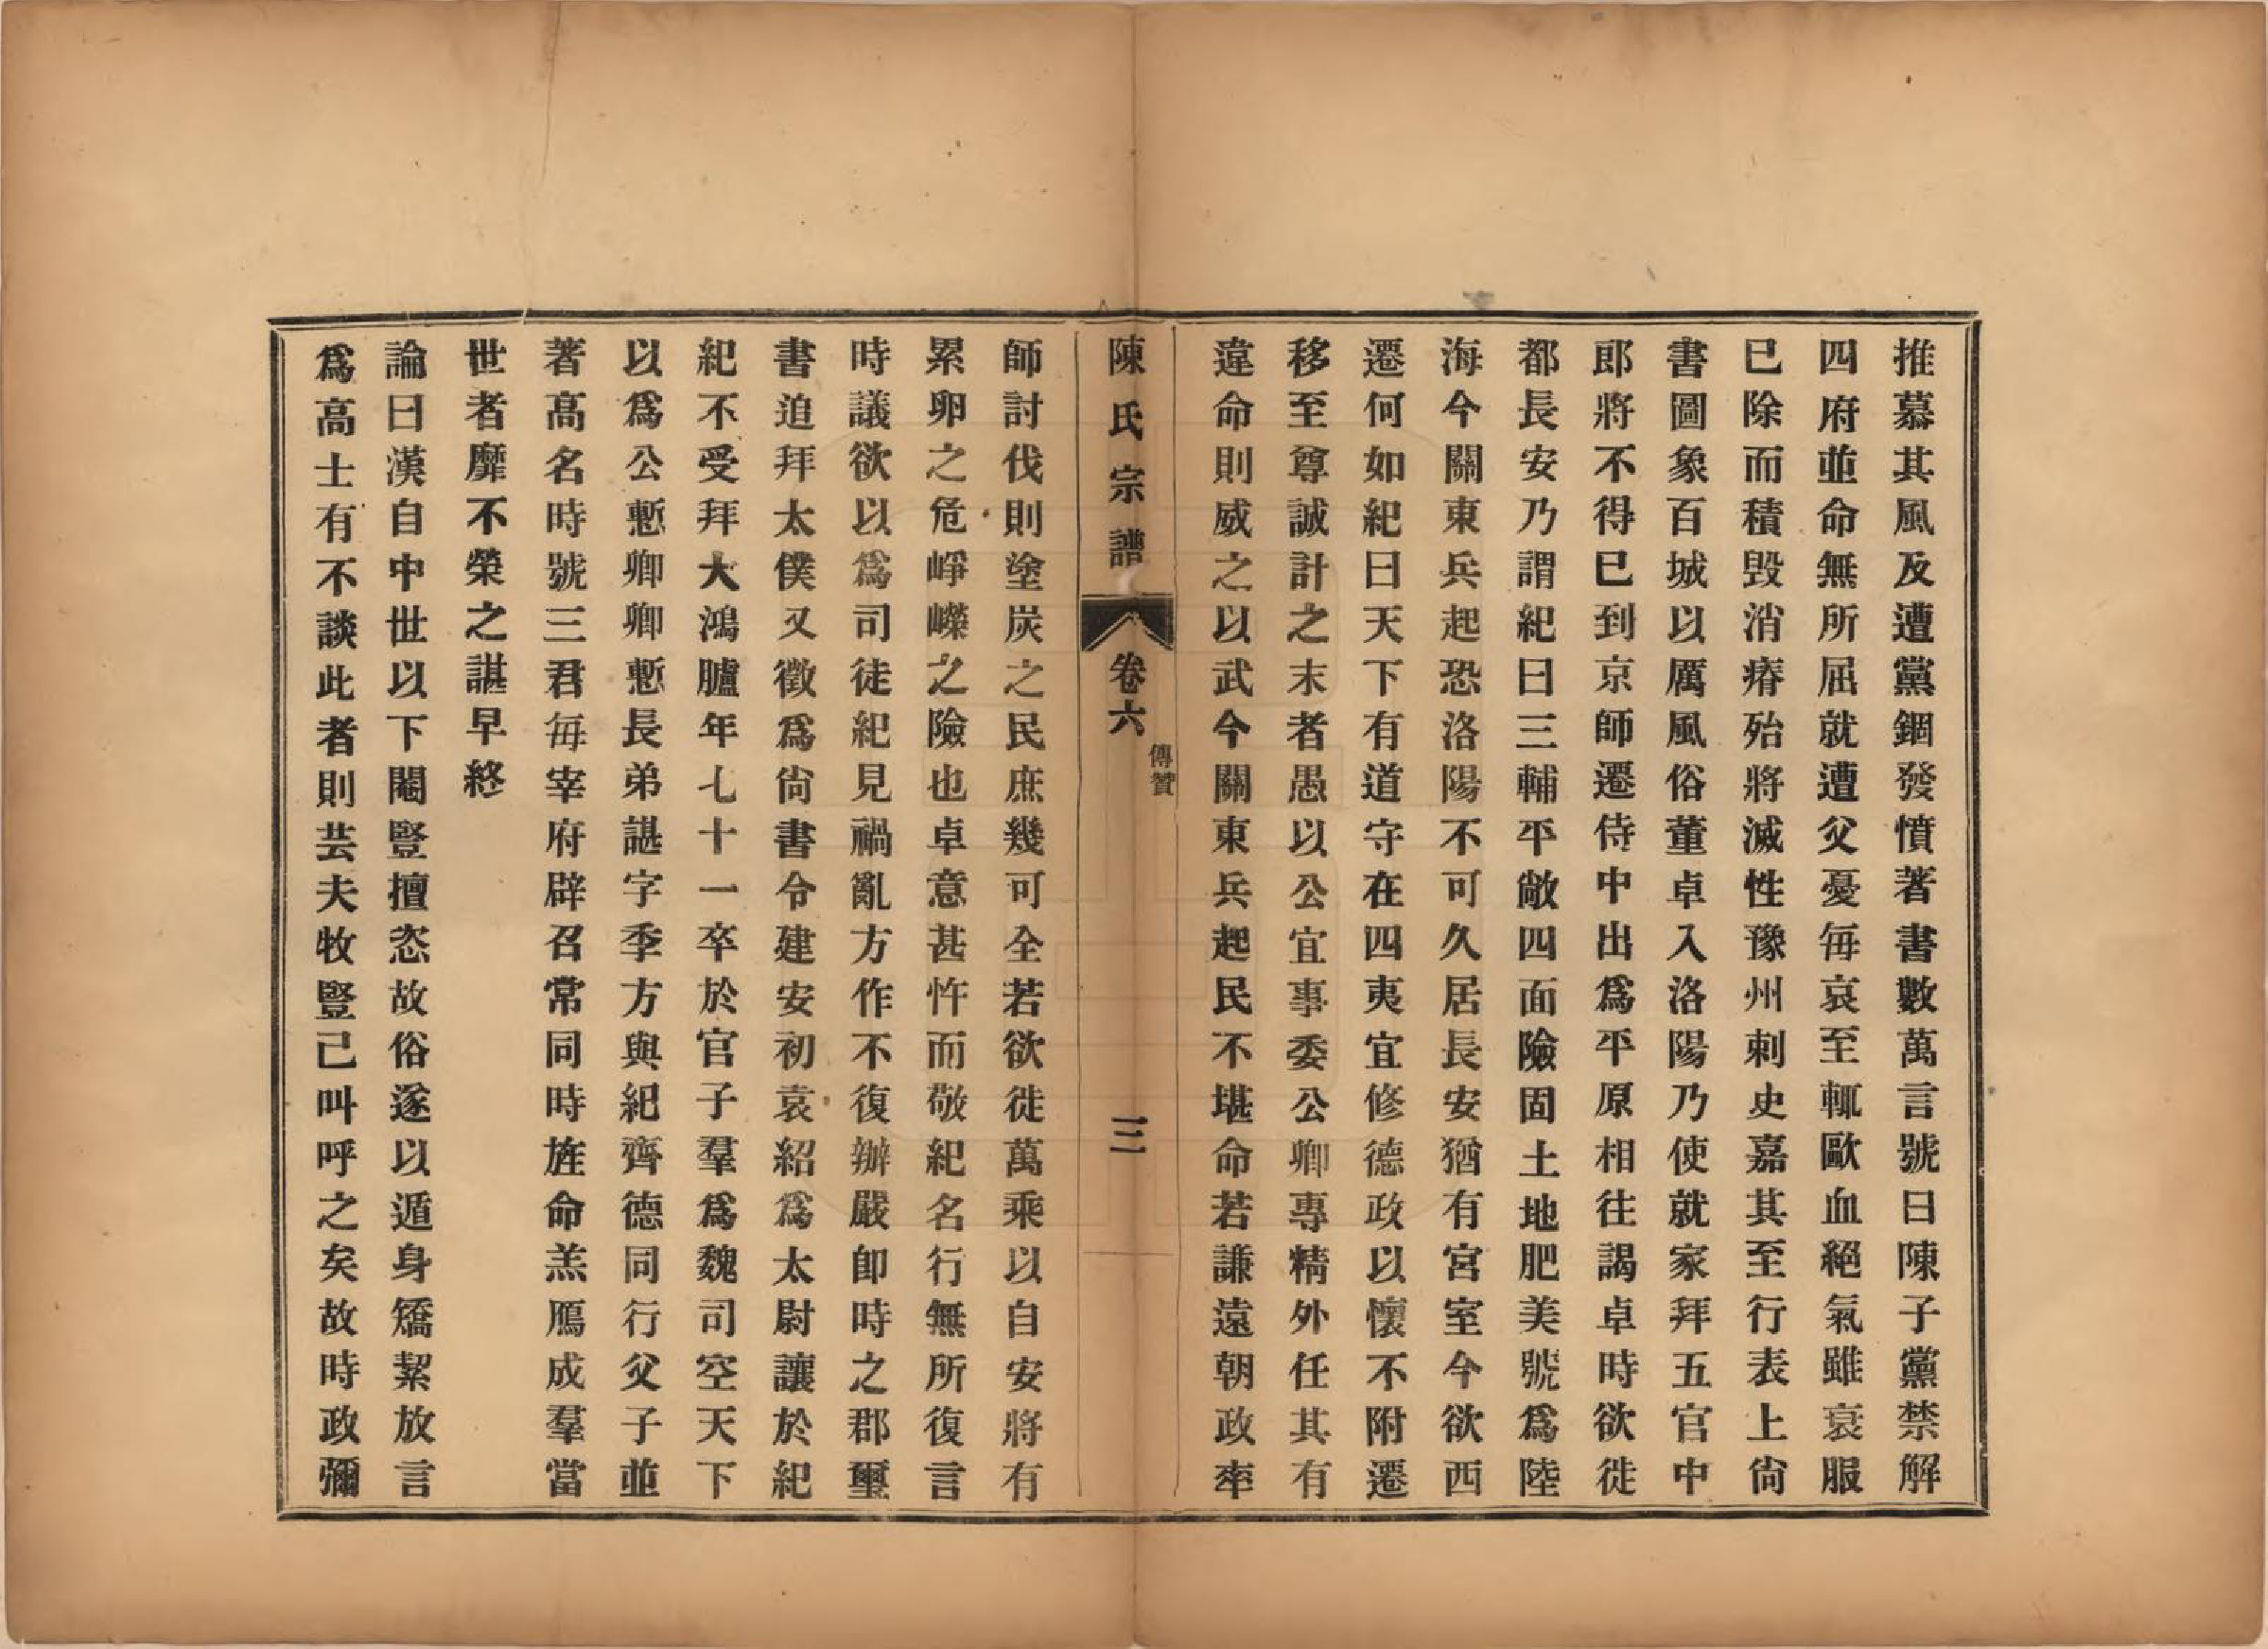 推慕其風及遭黨錮發憤著書數萬言號曰陳子黨禁解
四府並命無所屈就遭父憂每哀至輒歐血絕氣雖衰服
已除而積毀消瘠殆將滅性豫州刺史嘉其至行表上尙
書圖象百城以厲風俗董卓入洛陽乃使就家拜五官中
郎將不得已到京師遷侍中出爲平原相往謁卓時欲徙
都長安乃謂紀曰三輔平敞四面險固土地肥美號爲陸
海今關東兵起恐洛陽不可久居長安猶有宮室今欲西
遷何如紀曰天下有道守在四夷宜修德政以懷不附遷
移至尊誠計之末者愚以公宜事委公卿專精外任其有
違命則威之以武今關東兵起民不堪命若謙遠朝政率
陳氏宗譜
卷六
傳贊
三
師討伐則塗炭之民庶幾可全若欲徙萬乘以自安將有
累卵之危崢嶸之險也卓意甚忤而敬紀名行無所復言
時議欲以爲司徒紀見禍亂方作不復辦嚴卽時之郡璽
書追拜太僕又徵爲尙書令建安初袁紹爲太尉讓於紀
紀不受拜大鴻臚年七十一卒於官子羣爲魏司空天下
以爲公慙卿卿慙長弟諶字季方與紀齊德同行父子並
著高名時號三君每宰府辟召常同時旌命羔鴈成羣當
世者靡不榮之諶早終
論曰漢自中世以下閹豎擅恣故俗遂以遁身矯絜放言
爲高士有不談此者則芸夫牧豎已叫呼之矣故時政彌